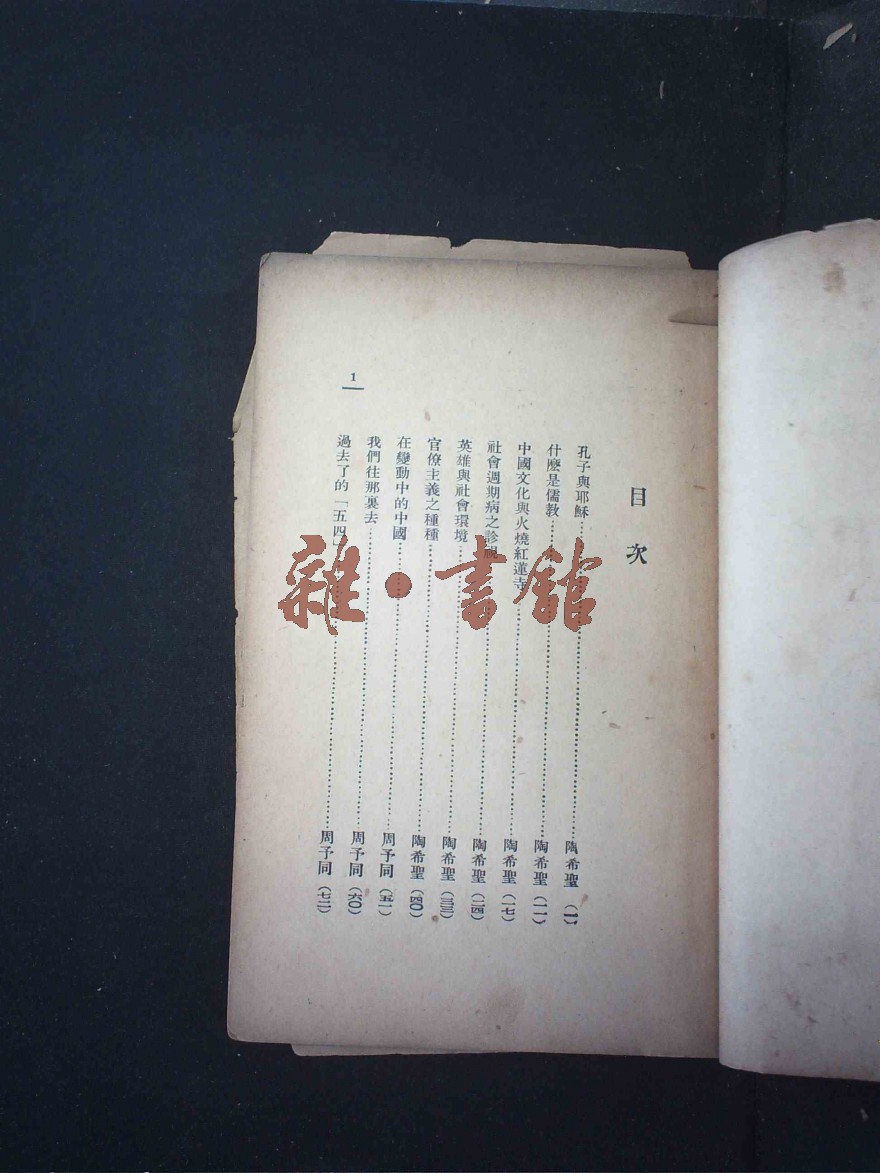 目次
孔子與耶穌……陶希聖(一)
什麼是儒教……陶希聖(一一)
中國文化與火燒紅蓮寺……陶希聖(一七)
社會週期病之診視……陶希聖(二四)
英雄與社會環境……陶希聖(三三)
官僚主義之種種……陶希聖(四〇)
在變動中的中國……周予同(五一)
我們往那裏去……周予同(六〇)
過去了的「五四」……周予同(七二)
1
雜·書館